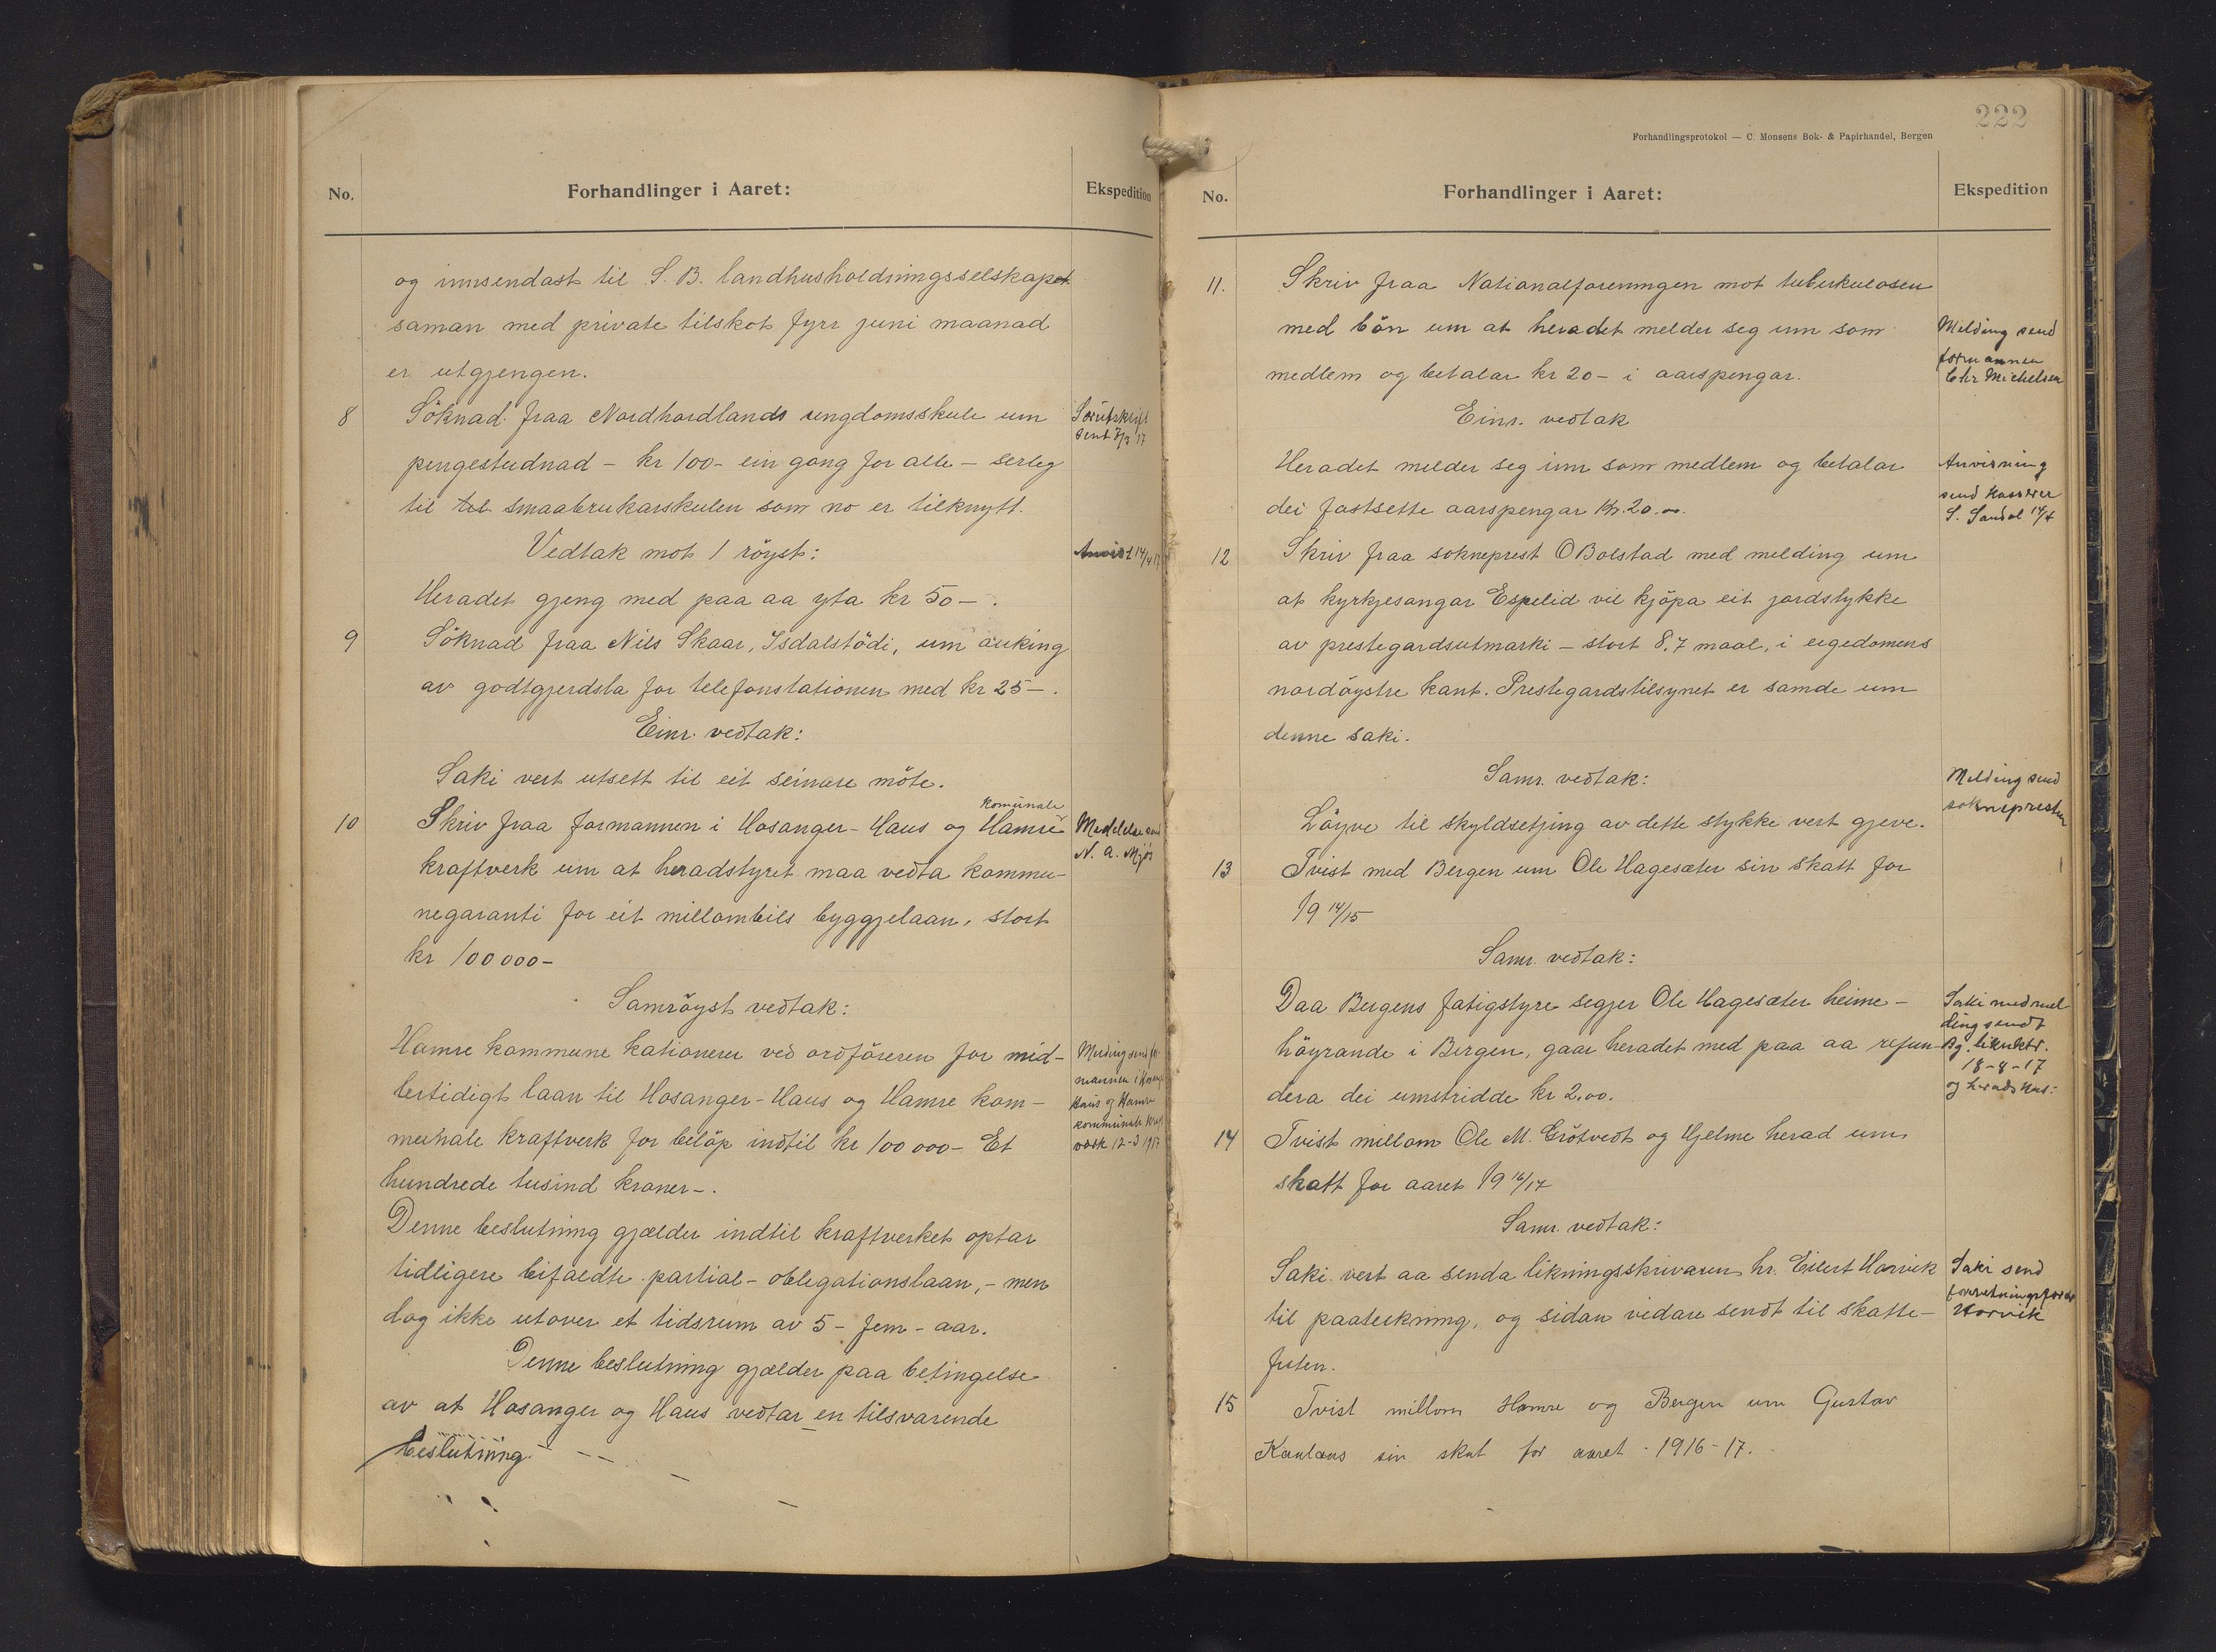 No.
Forhandlinger i Aaret:
Ekspedition
og innsendast til S. B. landhusholdningsselskapet
saman med private tilskot fyrr juni maanad
er utgjengen.
8
Söknad fraa Nordhordlands ungdomsskule um
Særutskrift
sent 7/3 17
pengestudnad – kr 100 – ein gong for alle – serleg
til til smaabrukarskulen som no er tilknytt.
Vedtak mot 1 röyst:
Anvist 14/4 17
Heradet gjeng med paa aa yta kr 50 – .
9
Söknad fraa Nils Skaar, Isdalstödi, um auking
av godtgjerdsla for telefonstationen med kr 25 – .
Einr. vedtak:
Saki vert utsett til eit seinare möte.
komunale
10
Skriv fraa formannen i Hosanger - Haus og Hamre
Meddelelse send
N. A. Mjös
kraftverk um at heradstyret maa vedta kommu-
negaranti for eit millombils byggjelaan, stort
kr 100 000 –
Samröyst vedtak:
Hamre kommune kationerer ved ordföreren for mid-
lertidigt laan til Hosanger - Haus og Hamre kom-
munale kraftverk for belöp indtil kr 100 000 – Et
Melding send for-
mannen i
Haus og Hamre
kommunale
verk 12-3 1917
hundrede tusind kroner – .
Denne beslutning gjælder indtil kraftverket optar
tidligere bifaldte partial - oblegationslaan, – men
dog ikke utover et tidsrum av 5 – fem – aar.
Denne beslutning gjælder paa betingelse
av at Hosanger og Haus vedtar en tilsvarende
beslutning.
222
Forhandlingsprotokol — C. Monsens Bok- & Papirhandel, Bergen
No.
Forhandlinger i Aaret:
Ekspedition
11.
Skriv fraa Nationalforeningen mot tuberkulosen
med bön um at heradet melder seg inn som
Melding send
formannen
Chr Michelsen
medlem og betalar kr 20 – i aarspengar.
Einr. vedtak
Heradet melder seg inn som medlem og betalar
Anvisning
send Kasserer
S. Sandal 14/4
dei fastsette aarspengar Kr. 20.00.
12
Skriv fraa sokneprest O Bolstad med melding um
at kyrkjesangar Espelid vil kjöpa eit jordstykke
av prestegardsutmarki – stort 8,7 maal, i eigedomens
nordöystre kant. Prestegardstilsynet er samde um
denne saki.
Samr. vedtak:
Melding send
soknepresten
Löyve til skyldsetjing av dette stykke vert gjeve.
13
Tvist med Bergen um Ole Hagesæter sin skatt for
19 14/15
Samr. vedtak:
Daa Bergens fatigstyre segjer Ole Hagesæter heime-
Saki med mel
ding sendt
Bg. liknktr.
18-8-17
og herads kas:
höyrande i Bergen, gaar heradet med paa aa refun-
dera dei umstridde kr 2,00.
14
Tvist millom Ole M. Grötvedt og Hjelme herad um
skatt for aaret 19 16/17
Samr. vedtak:
Saki vert aa senda likningsskrivaren hr. Eilert Horvik
Saki send
forretningsförer
Horvik
til paateikning, og sidan vidare sendt til skatte-
futen.
15
Tvist millom Hamre og Bergen um Gustav
Kaulaas sin skat for aaret 1916-17.